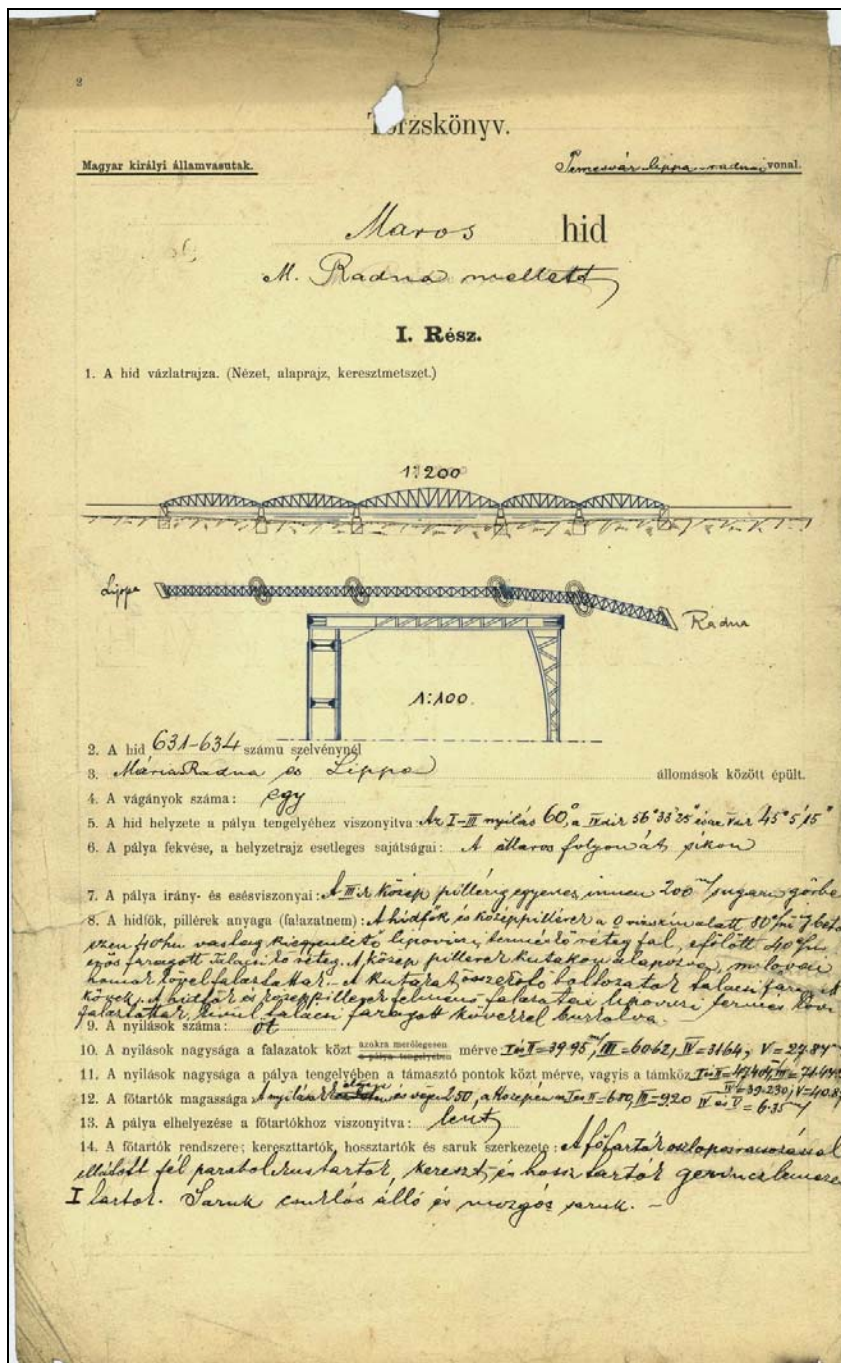 2
Törzskönyv.
Magyar király államvasutak. Temesvár lippa radnai vonal.
Maros hid
M. Radna mellett
I. Rész.
1. A hid vázlatrajza. (Nézet, alaprajz, keresztmetszet.)
1:200
Lippa
Radna
1:100.
2. A hid 631-634 számu szelvénynél
3. Mária Radna és Lippa állomások között épült.
4. A vágányok száma: egy
5. A hid helyzete a pálya tengelyéhez viszonyitva: Az I-III nyilás 60°, a IV dir 56° 33' 25" és az V ur 45° 5' 15"
6. A pálya fekvése, a helyzetrajz esetleges sajátságai: A Maros folyón át sikon
7. A pálya irány- és esésviszonyai: A III-ik közép pillérig egyenes, innen 200 m/ sugaru görbe
8. A hidfők, pillérek anyaga (falazatnem): A hidfők és középpillérek a 0 vizszin alatt 80
40 vastag kiegyenlitő lipovai terméskő réteg fal, efölött 40
faragott talacsi kő réteg. A közép pillérek kutakon alapozva, milovai
homok kővel falaztattak. A kutakat összekötő boltozatok talacsi farag
kövek. A hidfők és középpillérek felmenő falazatai lipovai termés kőből
falaztattak, kivül talacsi faragott kövekkel burkolva.
9. A nyilások száma: öt
10. A nyilások nagysága a falazatok közt azokra merőlegesen a pálya tengelyében mérve I és II=39·95 m/, III=60·62, IV=31·64, V=27·87 m
11. A nyilások nagysága a pálya tengelyében a támasztó pontok közt mérve, vagyis a támköz I és II=47·404, III=71·434
IV=39·230, V=40·8
12. A főtartók magassága A nyilások elején és végén 250, a közepén I és II=6·80, III=9·20 IV és V=6·35 m/
13. A pálya elhelyezése a főtartókhoz viszonyitva: lent
14. A főtartók rendszere; kereszttartók, hossztartók és saruk szerkezete: A főtartók oszlopos rácsozással
ellátott fél parabolikus tartók, kereszt, és hossz tartók gerinczlemeze
I tartók. Saruk csuklós álló és mozgó saruk. –